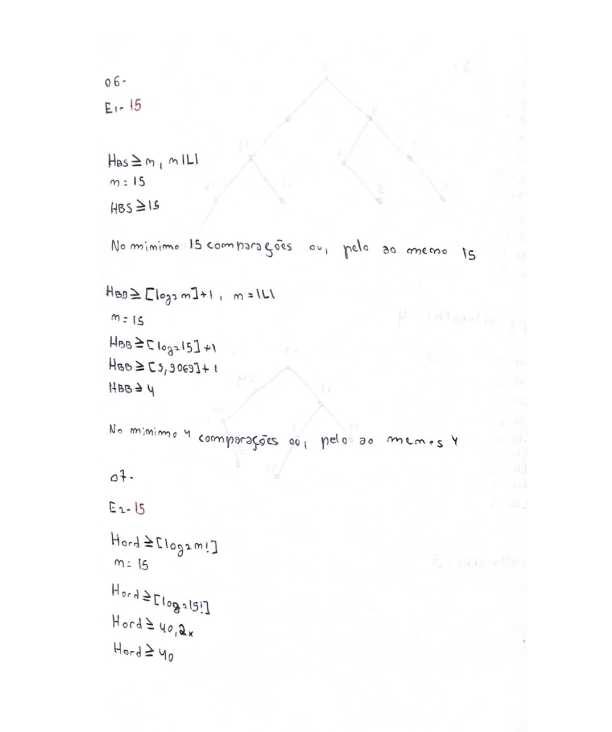 06-
E1- 15
HBS ≥ m, m|L|
m = 15
HBS ≥ 15
No mimimo 15 comparações ou, pelo ao memo 15
HBB ≥ [log2 m]+1, m = |L|
m = 15
HBB ≥ [log2 15] +1
HBB ≥ [3,9069] + 1
HBB ≥ 4
No mimimo 4 comparações ou, pelo ao memos 4
07-
E2- 15
Hord ≥ [log2 m!]
m = 15
Hord ≥ [log2 15!]
Hord ≥ 40,2x
Hord ≥ 40